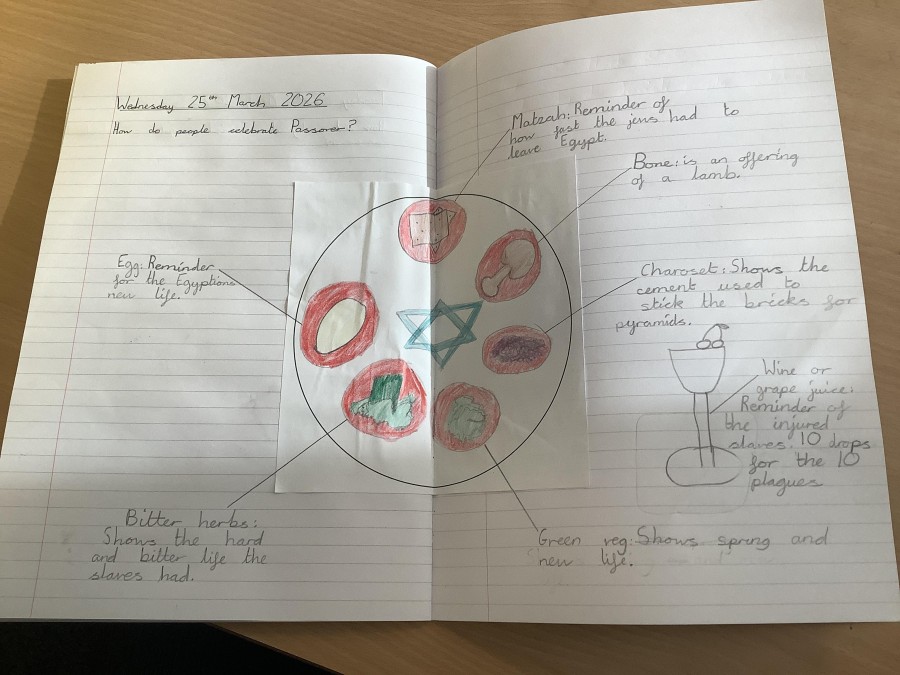 Wednesday 25th March 2026
How do people celebrate Passover?
Egg: Reminder
for the Egyptions
new life.
Bitter herbs:
Shows the hard
and bitter life the
slaves had.
Matzah: Reminder of
how fast the jews had to
leave Egypt.
Bone: is an offering
of a lamb.
Charoset: Shows the
cement used to
stick the bricks for
pyramids.
Wine or
grape juice:
Reminder of
the injured
slaves. 10 drops
for the 10
plagues
Green veg: Shows spring and
new life.